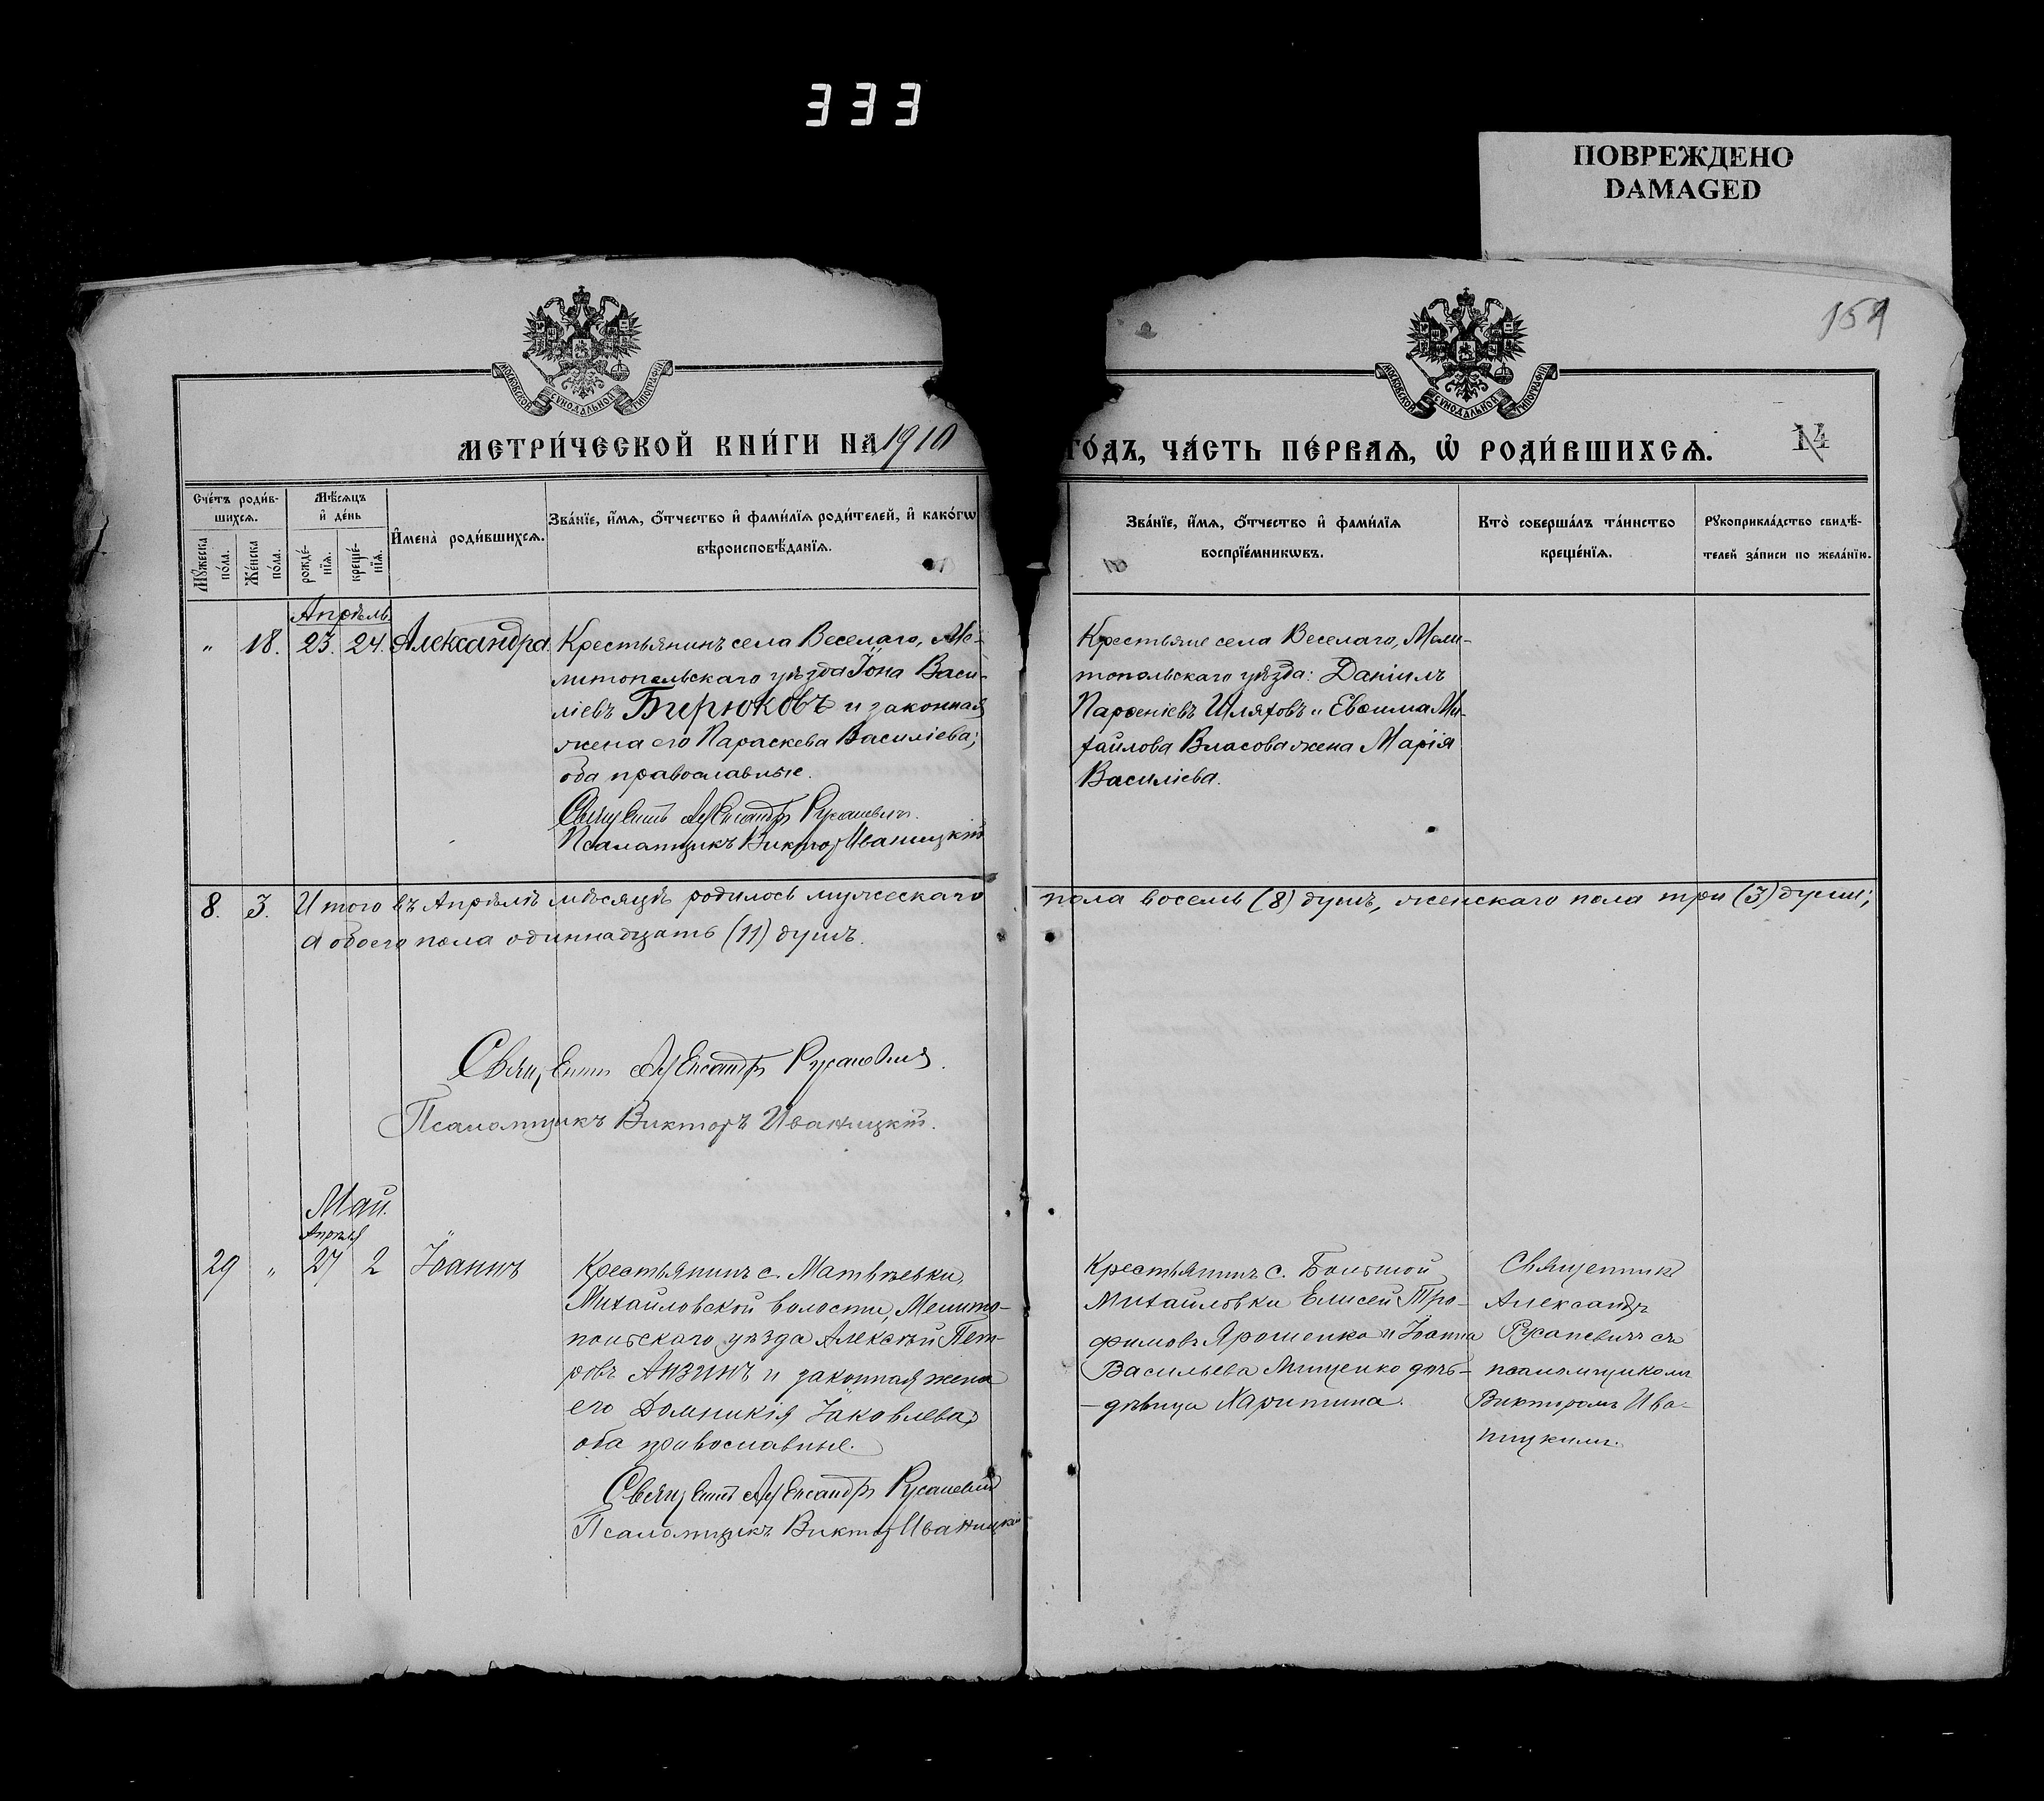 333
ПОВРЕЖДЕНО
DAMAGED
159
МОСКОВСКОЙ СѴНОДАЛЬНОЙ ТИПОГРАФІИ
МОСКОВСКОЙ СѴНОДАЛЬНОЙ ТИПОГРАФІИ
МЕТРИ́ЧЕСКОЙ КНИ́ГИ НА 1910
ГО́ДЪ, ЧА́СТЬ ПЕ́РВАѦ, Ѡ҆ РОДИ́ВШИХСѦ.
14
Сче́тъ роди́в-
шихсѧ.
Мꙋ́жеска по́ла.
Же́нска по́ла.
Мѣ́сѧцъ
и҆ де́нь
рожде́-
нїѧ.
креще́-
нїѧ.
И҆мена̀ роди́вшихсѧ.
Зва́нїе, и҆́мѧ, ѻ҆́тчество и҆ фами́лїѧ роди́телей, и҆ како́гѡ
вѣроисповѣ́данїѧ.
Зва́нїе, и҆́мѧ, ѻ҆́тчество и҆ фами́лїѧ
воспрїе́мникѡвъ.
Кто̀ соверша́лъ та́инство
креще́нїѧ.
Рꙋкоприкла́дство свидѣ́-
телей за́писи по жела́нїю.
Апрѣль
" 18. 23. 24. Александра.
Крестьянинъ села Веселаго, Ме-
литопольскаго уѣзда Іона Васи-
ліевъ Бирюковъ и законная
жена его Параскева Василіева;
оба православные.
Священникъ Александръ Русаневичъ.
Псаломщикъ Викторъ Иваницкій
Крестьяне села Веселаго, Мели-
топольскаго уѣзда: Даніилъ
Парѳеніевъ Шляховъ и Евѳима Ми-
хайлова Власова жена Марія
Василіева.
8. 3. Итого въ Апрѣлѣ мѣсяцѣ родилось мужескаго пола восемь (8) душъ, женскаго пола три (3) души;
а обоего пола одиннадцать (11) душъ.
Священникъ Александръ Русаневичъ.
Псаломщикъ Викторъ Иваницкій.
Май.
Апрѣля
29 " 27 2 Іоаннъ
Крестьянинъ с. Матвѣевки,
Михайловской волости, Мелито-
польскаго уѣзда Алексѣй Пет-
ровъ Анзинъ и законная жена
его Домникія Іаковлева,
оба православные.
Священникъ Александръ Русаневичъ
Псаломщикъ Викторъ Иваницкій
Крестьянинъ с. Большой
Михайловки Елисей Тро-
фимовъ Ярошенко и Іоанна
Васильева Мищенко дочь-
-дѣвица Харитина.
Священникъ
Александръ
Русаневичъ съ
псаломщикомъ
Викторомъ Ива-
ницкимъ.